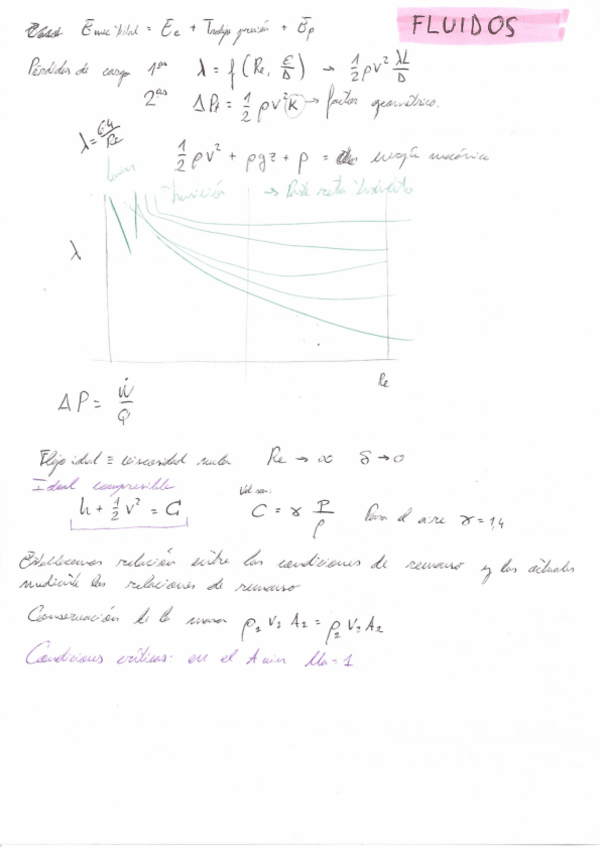 FLUIDOS
E mec total = Ec + Trabajo presión + Ep
Pérdidas de carga 1ᵃˢ λ = f (Re, ε/D) → ½ρv² λL/D
2ᵃˢ ΔPt = ½ρv²K → factor geométrico.
λ = 64/Re
½ρv² + ρgz + p = energía mecánica
Transición → Parte
λ
Re
ΔP = Ẇ/Q
Flujo ideal ≡ viscosidad nula Re → ∞ δ → 0
Ideal compresible
h + ½v² = C
Vel son:
C = γ P/ρ Para el aire γ = 1,4
Establecemos relación entre las condiciones de remanso y las actuales
mediante las relaciones de remanso
Conservación de la masa ρ₁ V₁ A₁ = ρ₂ V₂ A₂
Condiciones críticas: en el A min Ma = 1